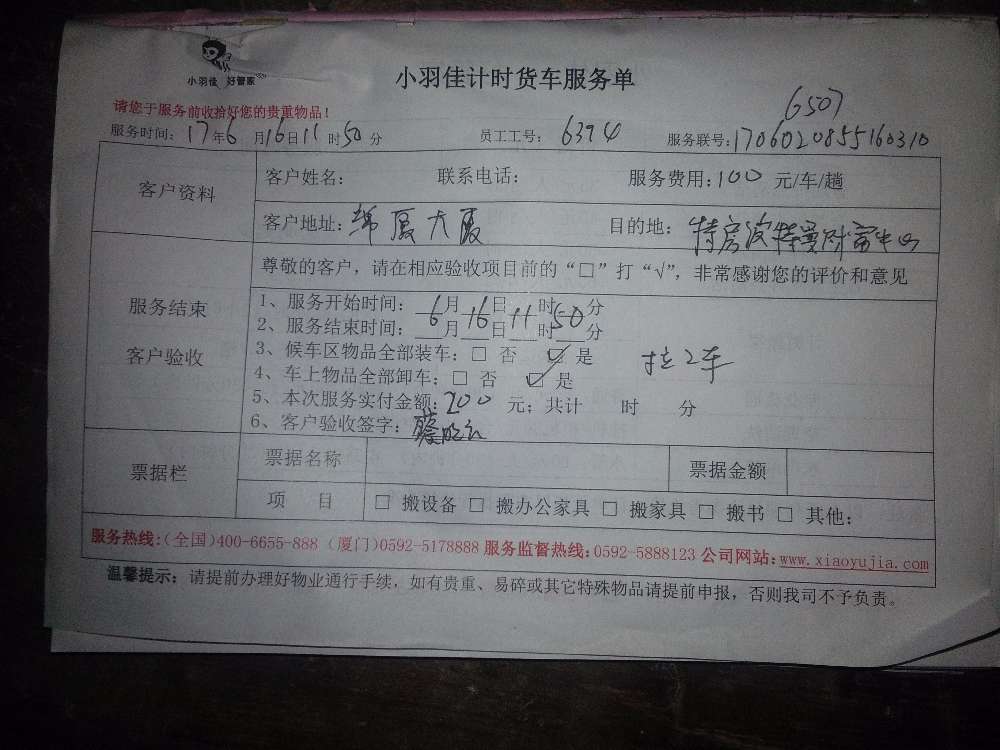 小羽佳 好管家
小羽佳计时货车服务单
请您于服务前收拾好您的贵重物品！
6507
服务时间：17年6月16日11时50分 员工工号：6394 服务联号：1706020855160310
客户资料 客户姓名： 联系电话： 服务费用：100 元/车/趟
客户地址：厦大厦 目的地：特房波特曼财富中心
尊敬的客户，请在相应验收项目前的“□”打“√”，非常感谢您的评价和意见
服务结束 客户验收
1、服务开始时间：6月16日11时50分
2、服务结束时间：__月__日__时__分
3、候车区物品全部装车：□ 否 ☑ 是 拉2车
4、车上物品全部卸车：□ 否 ☑ 是
5、本次服务实付金额：200 元；共计 时 分
6、客户验收签字：蔡
票据栏 票据名称 票据金额
项 目 □ 搬设备 □ 搬办公家具 □ 搬家具 □ 搬书 □ 其他：
服务热线：（全国）400-6655-888（厦门）0592-5178888 服务监督热线：0592-5888123 公司网站：www.xiaoyujia.com
温馨提示：请提前办理好物业通行手续，如有贵重、易碎或其它特殊物品请提前申报，否则我司不予负责。